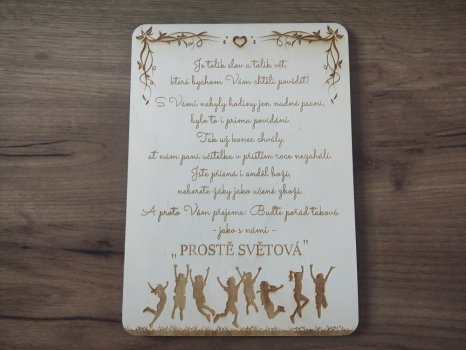 Je tolik slov a tolik vět,
které bychom Vám chtěli povědět!
S Vámi nebyly hodiny jen nudné psaní,
bylo to i prima povídání.
Tak už konec chvály,
ať nám paní učitelka v příštím roce nezahálí.
Jste přísná i anděl boží,
neberete žáky jako učené zboží.
A proto Vám přejeme: Buďte pořád taková
- jako s námi -
„PROSTĚ SVĚTOVÁ"